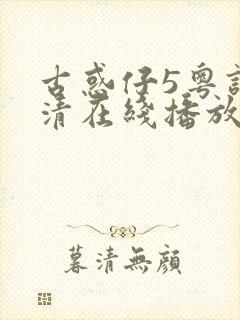 古惑仔5粤語
清在綫播放
暮清無顔